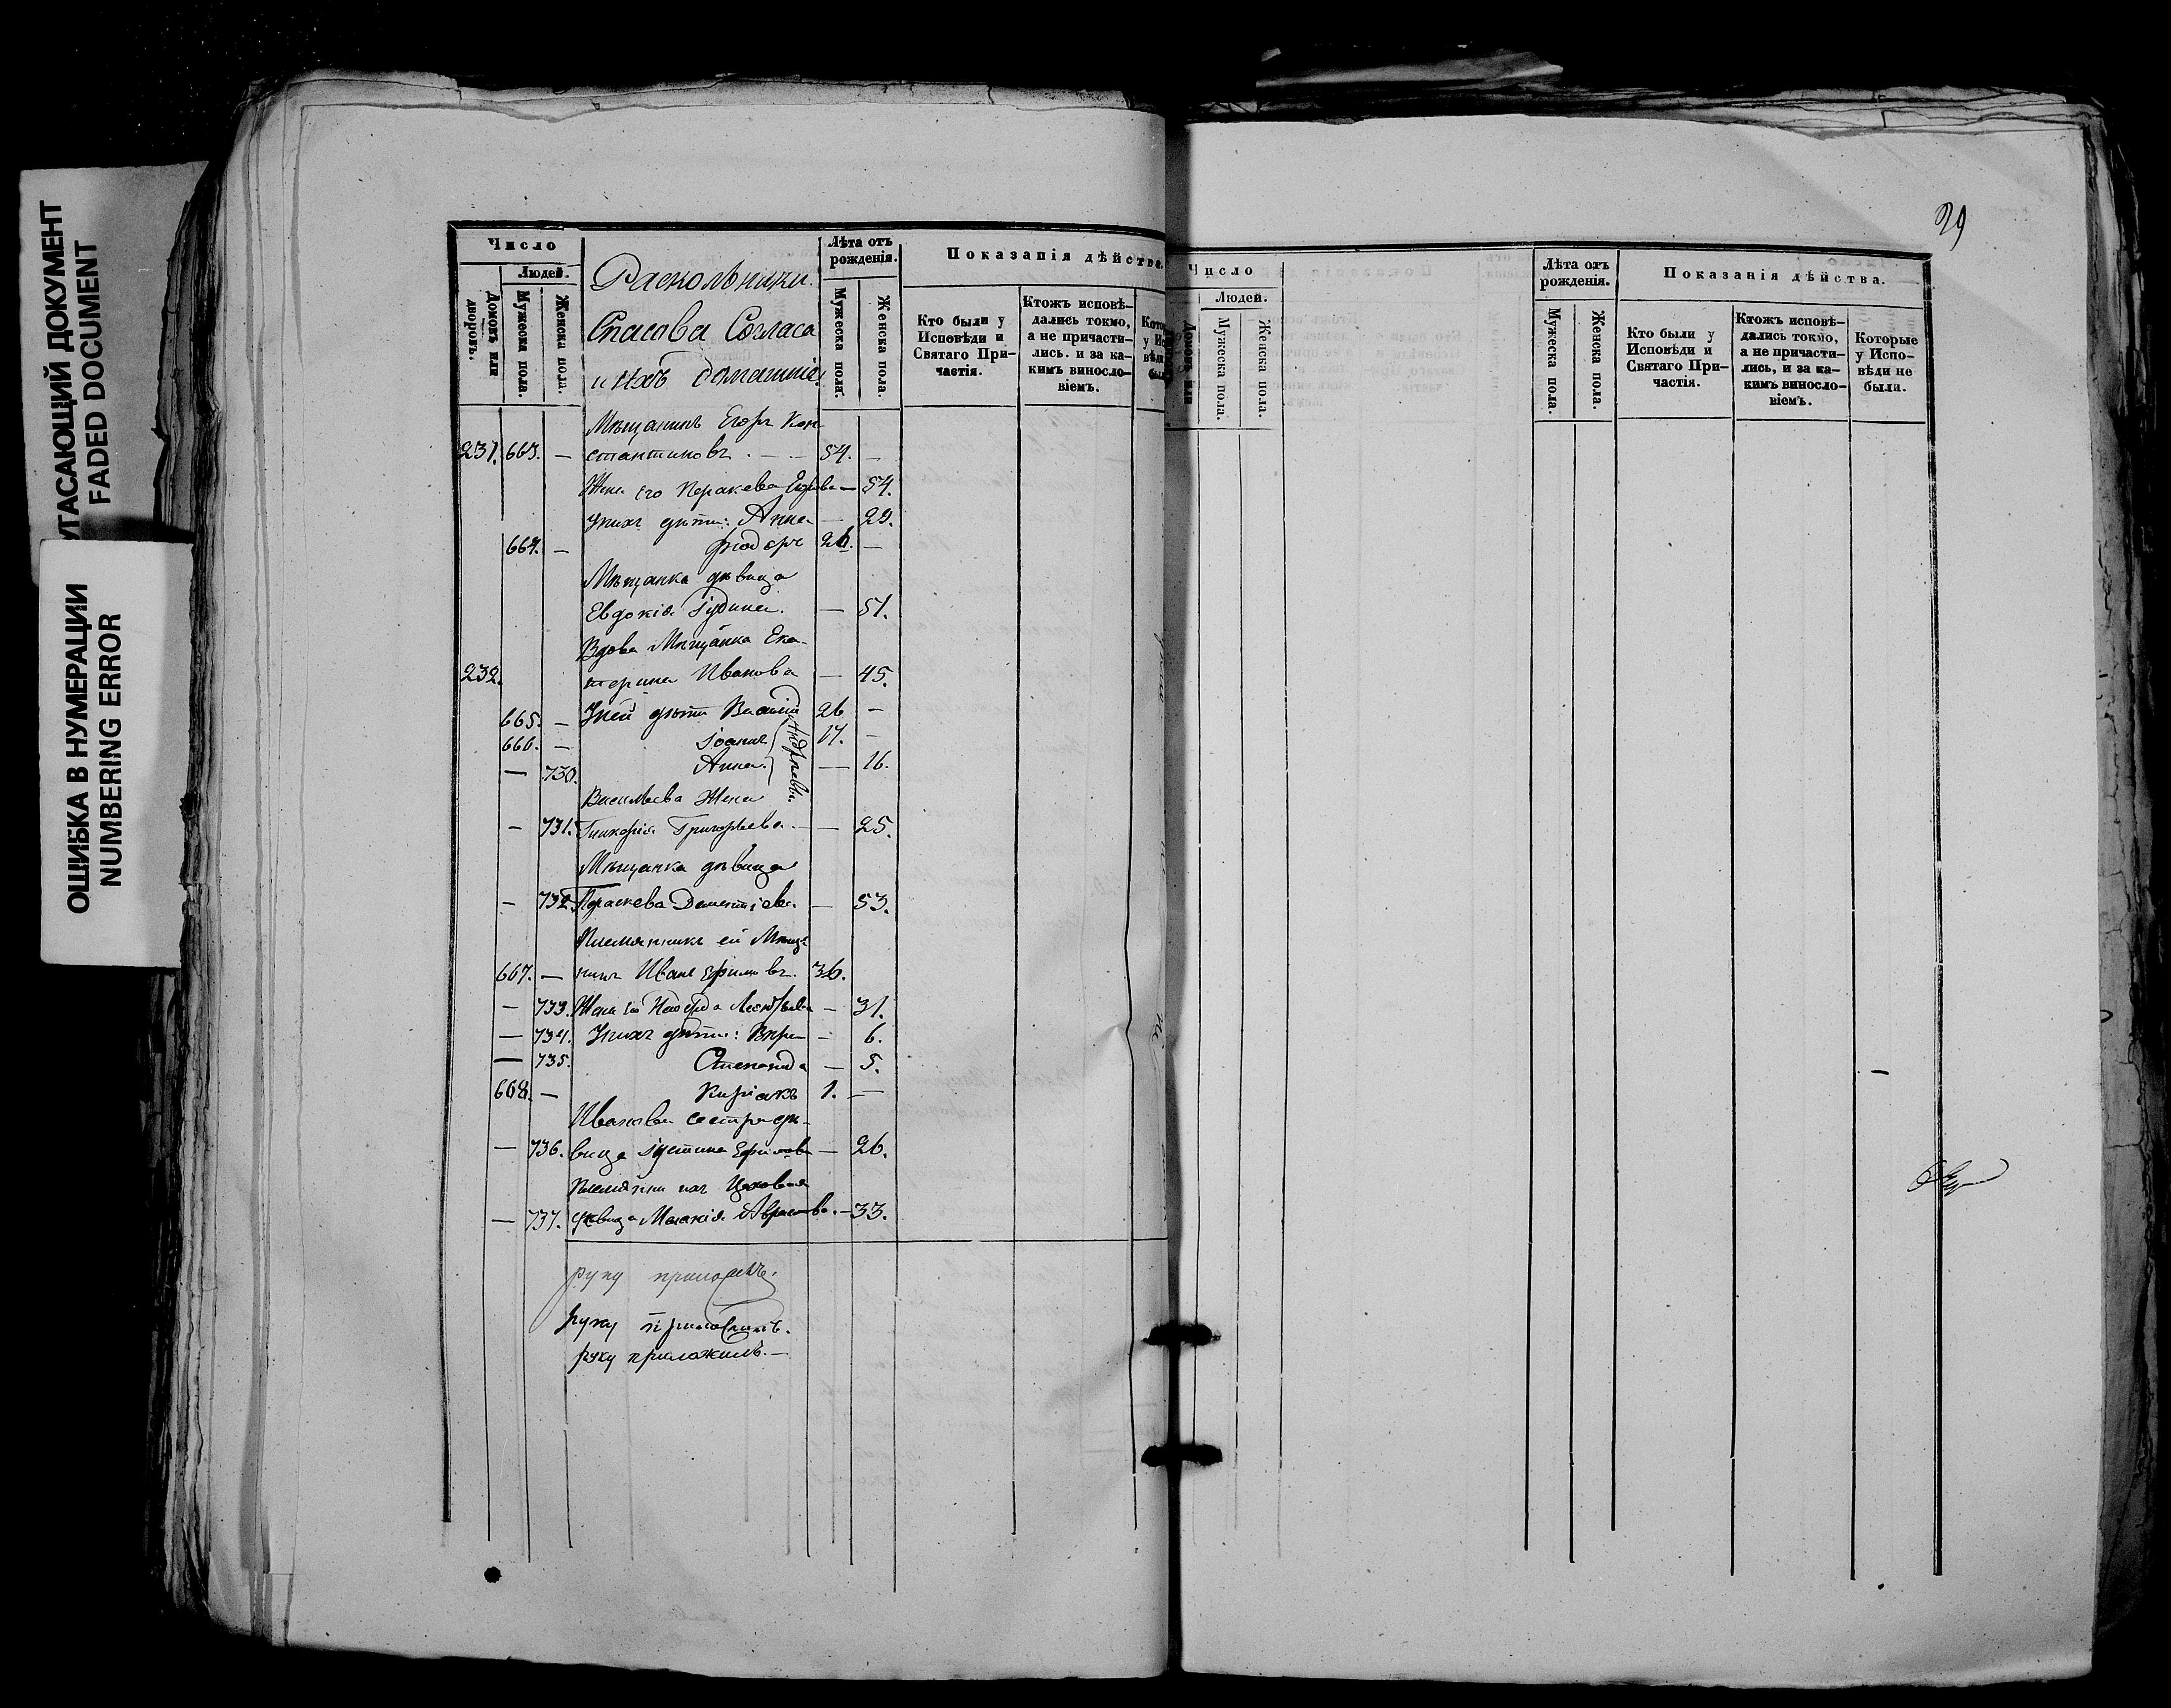 УГАСАЮЩИЙ ДОКУМЕНТ
FADED DOCUMENT
ОШИБКА В НУМЕРАЦИИ
NUMBERING ERROR
Число
Людей.
Домовъ или дворовъ.
Мужеска пола.
Женска пола.
Раскольники
Спасова Согласа
и ихъ домашніе
Лѣта отъ рожденія.
Мужеска пола.
Женска пола.
Показанія дѣйства.
Кто были у Исповѣди и Святаго При-
частія.
Ктожъ исповѣ-
дались токмо,
а не причасти-
лись. и за ка-
кимъ виносло-
віемъ.
Мѣщанинъ Егоръ Кон-
231. 663. — стантиновъ . — — 54. —
Жена Его Параскева — 54.
У нихъ дѣти: Анна — 29.
664. — Ѳеодоръ 26. —
Мѣщанка дѣвица
Евдокія Іудина. — 51.
Вдова Мѣщанка Ека-
232. терина Иванова — 45.
665. — У ней дѣти Василій 26 —
666. — Іоаннъ 17. —
— 730. Анна — 16.
Андреевы.
Васильева Жена
— 731. Гликерія Григорьева — — 25.
Мѣщанка дѣвица
— 732. Параскева Дементіева — 53.
Племянникъ ея Мѣща-
667. — нинъ Иванъ Ефимовъ. 36.
— 733. Жена его Надежда — 31.
— 734. У нихъ дѣти: Вѣра — 6.
— 735. Степанида — 5.
668. — Киріакъ 1. —
Иванова сестра дѣ-
— 736. вица Іустина Ефимова — 26.
Племянница ихъ Цеховая
— 737. дѣвица Меланія Абрамова. — 33.
руку приложилъ.
руку приложилъ.
руку приложилъ. —
29
Число
Людей.
Домовъ или
Мужеска пола.
Женска пола.
Лѣта отъ рожденія.
Мужеска пола.
Женска пола.
Показанія дѣйства.
Кто были у
Исповѣди и
Святаго При-
частія.
Ктожъ исповѣ-
дались токмо,
а не причасти-
лись, и за ка-
кимъ виносло-
віемъ.
Которые
у Испо-
вѣди не
были.